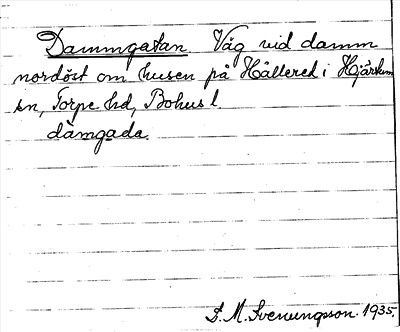 Dammgatan Väg vid damm
nordöst om husen på Hållered i Hjärtum
sn, Torpe hd, Bohusl.
dåmgada.
S. M. Svenungsson. 1935.